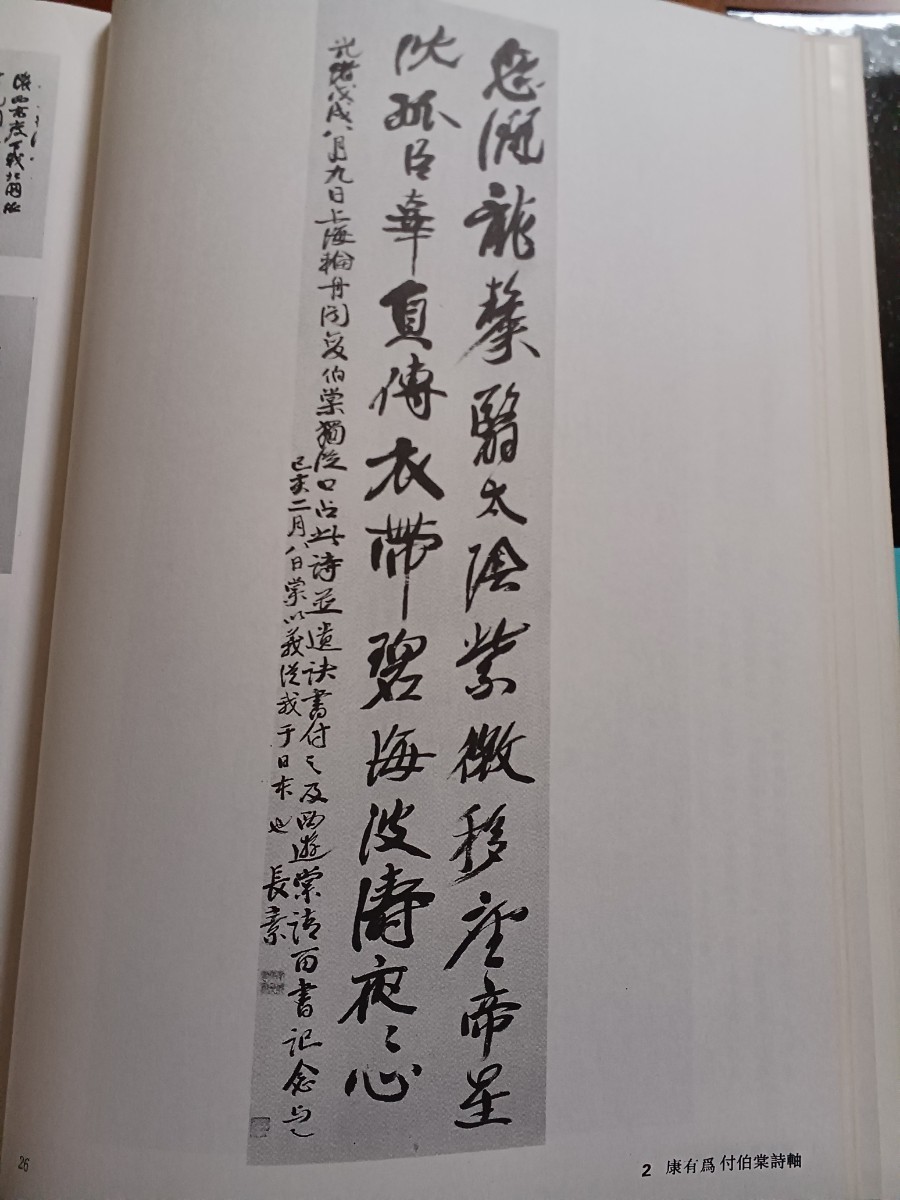 忽灑龍漦翳太陰紫微移座帝星
沈孤臣辜負傳衣帶碧海波濤夜〻心
光緒戊戌八月九日上海輪舟聞變伯棠獨從口占此詩並遺訣書付之及西遊棠請再書記念与之
己亥二月八日棠以義從我于日本也 長素
2 康有爲 付伯棠詩軸
26